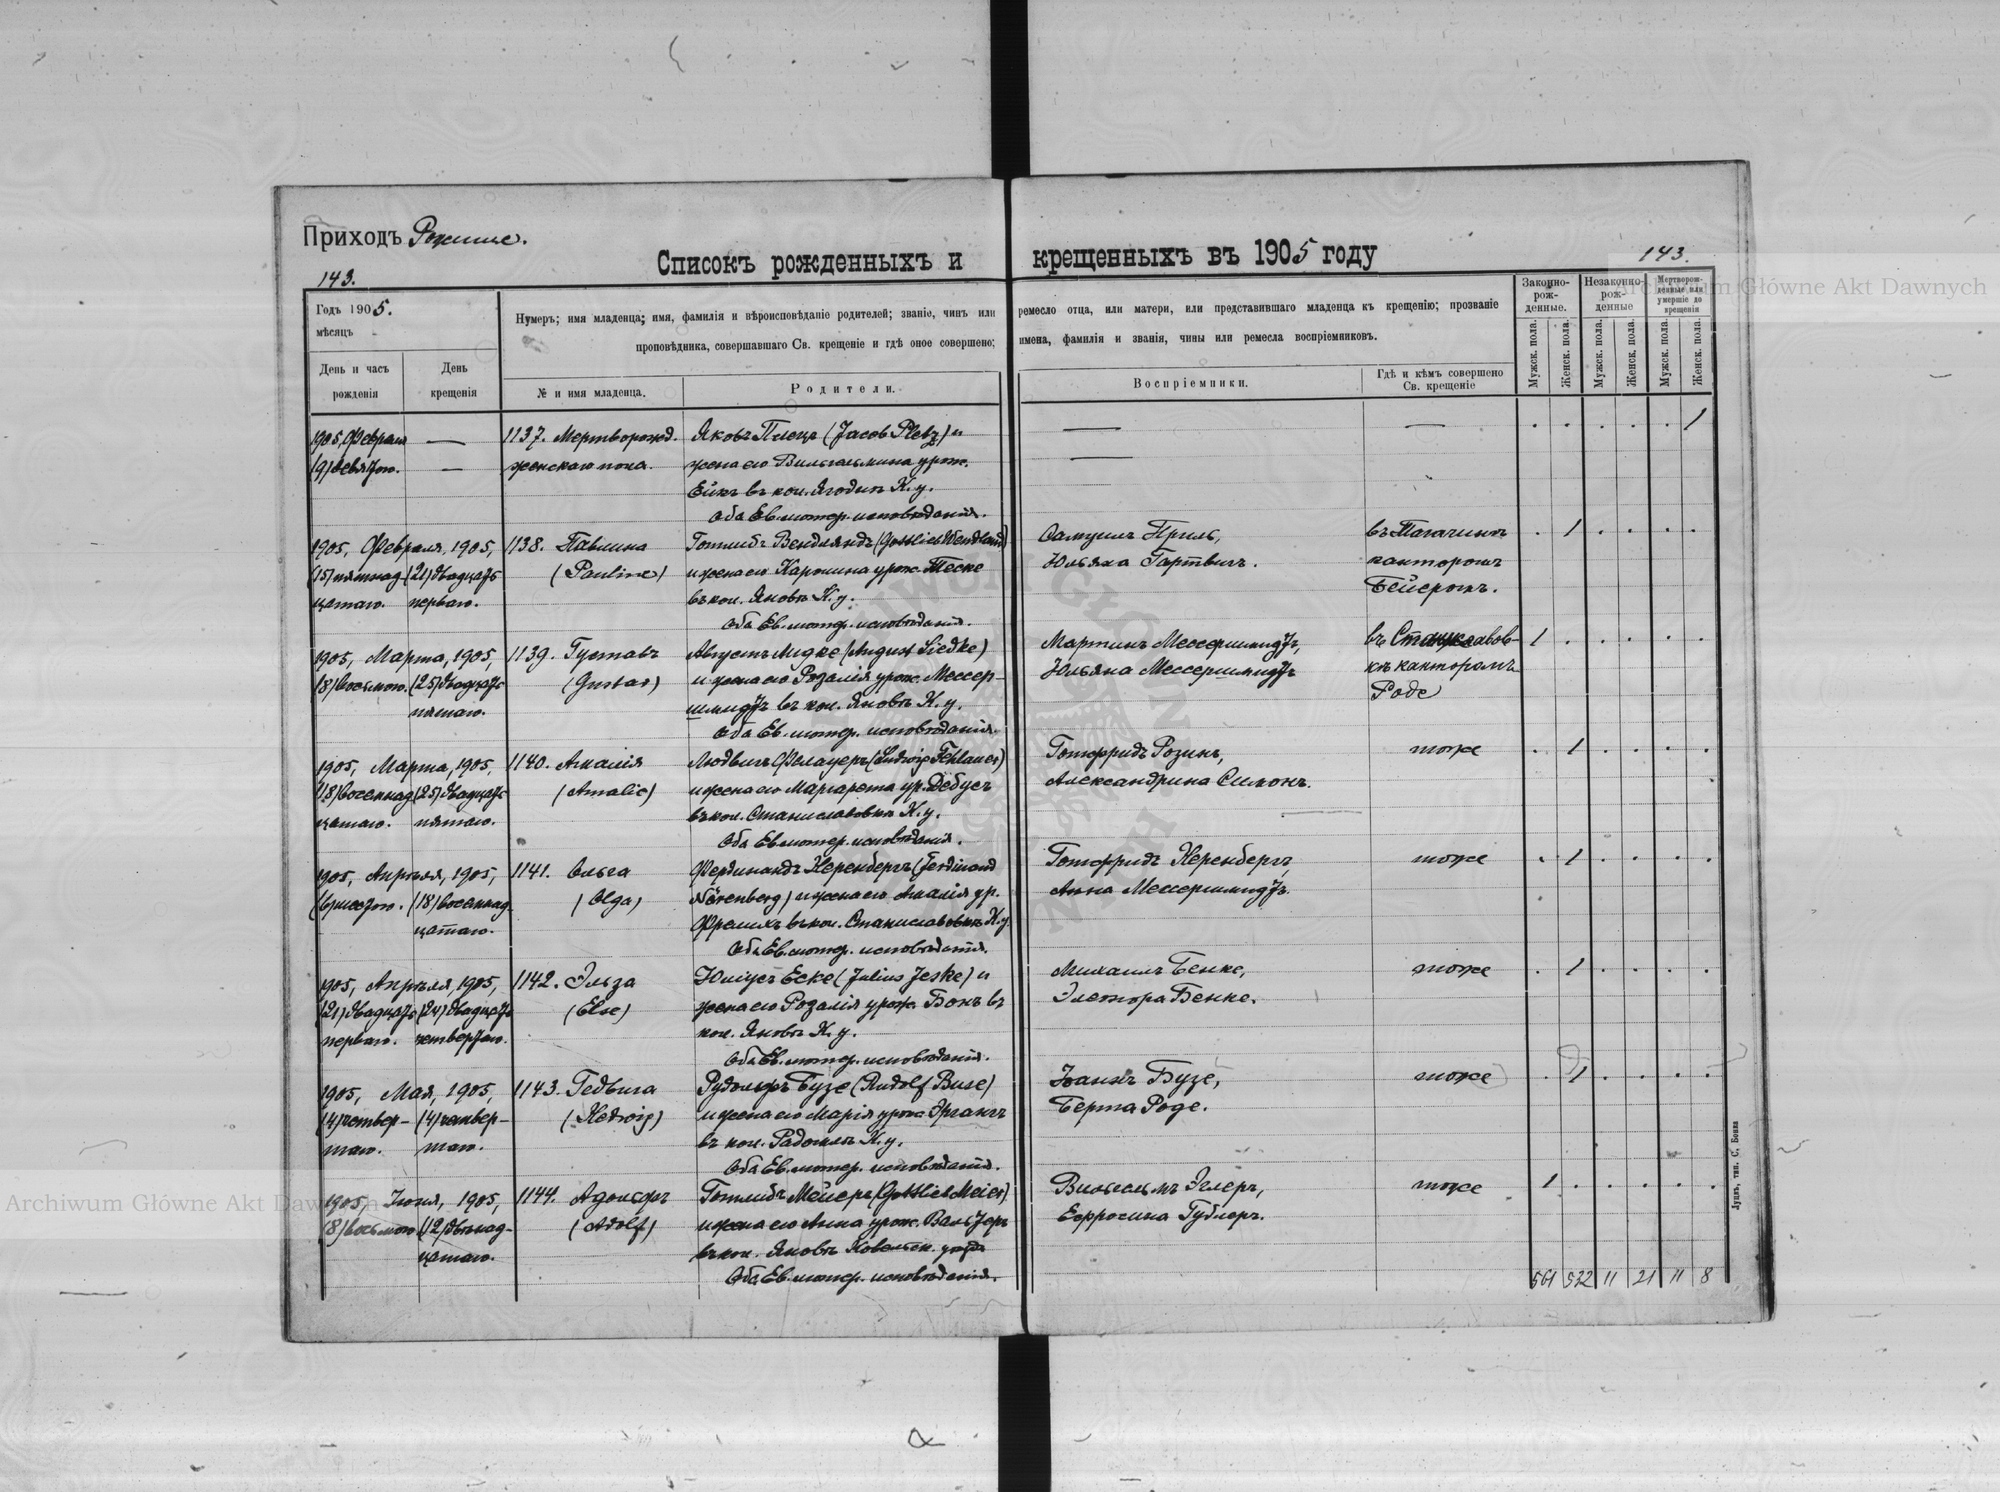 Приходъ Рожище.
143.
Списокъ рожденныхъ и крещенныхъ въ 1905 году
143.
Годъ 1905.
мѣсяцъ
День и часъ рожденія
День крещенія
Нумеръ; имя младенца; имя, фамилія и вѣроисповѣданіе родителей; званіе, чинъ или ремесло отца, или матери, или представившаго младенца къ крещенію; прозваніе
проповѣдника, совершавшаго Св. крещеніе и гдѣ оное совершено; имена, фамилія и званія, чины или ремесла воспріемниковъ.
№ и имя младенца.
Родители.
Воспріемники.
Гдѣ и кѣмъ совершено Св. крещеніе
Законно-рож-денные.
Незаконно-рож-денные
Мертворож-денные или умершіе до крещенія
Мужск. пола.
Женск. пола.
Мужск. пола.
Женск. пола.
Мужск. пола.
Женск. пола.
1905, Февраля
(9) девятого.
1137. Мертворожд.
женскаго пола.
Яковъ Плецъ (Jacob Pletz) и
жена его Вильгельмина урож.
въ кол. Ягодинъ К. у.
Оба Ев. лютер. исповѣданія.
1
1905, Февраля, 1905,
(15) пятнад- (21) двадцать
цатаго. перваго.
1138. Павлина
(Pauline)
Готлибъ Вендляндъ (Gottlieb Wendland)
и жена его Каролина урож. Теске
въ кол. Яновкѣ К. у.
Оба Ев. лютер. исповѣданія.
Самуилъ Приль,
Юльяна Гартвигъ.
въ
канторомъ
Бейеромъ.
1
1905, Марта, 1905,
(8) восьмого. (25) двадцать
пятаго.
1139. Густавъ
(Gustav)
Августъ Лидке (August Liedke)
и жена его Розалія урож. Мессер-
шмидтъ въ кол. Яновкѣ К. у.
Оба Ев. лютер. исповѣданія.
Мартинъ Мессершмидтъ,
Юльяна Мессершмидтъ
въ Станиславов-
кѣ канторомъ
Роде
1
1905, Марта, 1905,
(18) восемнад- (25) двадцать
цатаго. пятаго.
1140. Амалія
(Amalie)
Людвигъ Фелауеръ (Ludwig Fehlauer)
и жена его Маргарета ур. Дебусъ
въ кол. Станиславовкѣ К. у.
Оба Ев. лютер. исповѣданія.
Готфридъ Розинъ,
Александрина Симонъ.
тоже
1
1905, Апрѣля, 1905,
(6) шестого. (18) восемнад-
цатаго.
1141. Ольга
(Olga)
Фердинандъ Неренбергъ (Ferdinand
Nörenberg) и жена его Амалія ур.
въ кол. Станиславовкѣ К. у.
Оба Ев. лютер. исповѣданія.
Готфридъ Неренбергъ,
Анна Мессершмидтъ.
тоже
1
1905, Апрѣля, 1905,
(21) двадцать (24) двадцать
перваго. четвертаго.
1142. Эльза
(Else)
Юліусъ Еске (Julius Jeske) и
жена его Розалія урож. Бокъ въ
кол. Яновкѣ К. у.
Оба Ев. лютер. исповѣданія.
Михаилъ Бенке,
Бенке.
тоже
1
1905, Мая, 1905,
(4) четвер- (4) четвер-
таго. таго.
1143. Гедвига
(Hedwig)
Рудольфъ Бузе (Rudolf Buse)
и жена его Марія урож. Эргангъ
въ кол. К. у.
Оба Ев. лютер. исповѣданія.
Іоганъ Бузе,
Берта Роде.
тоже
1
1905, Іюня, 1905,
(8) восьмого (12) двѣнад-
цатаго.
1144. Адольфъ
(Adolf)
Готлибъ Мейеръ (Gottlieb Meier)
и жена его Анна урож. Вальтеръ
въ кол. Яновкѣ Ковельск. уѣзда
Оба Ев. лютер. исповѣданія.
Вильгельмъ Эглеръ,
Ефросина Гублеръ.
тоже
1
561 532 11 21 11 8
Луцкъ, тип. С. Бокка
Archiwum Główne Akt Dawnych
Archiwum Główne Akt Dawnych